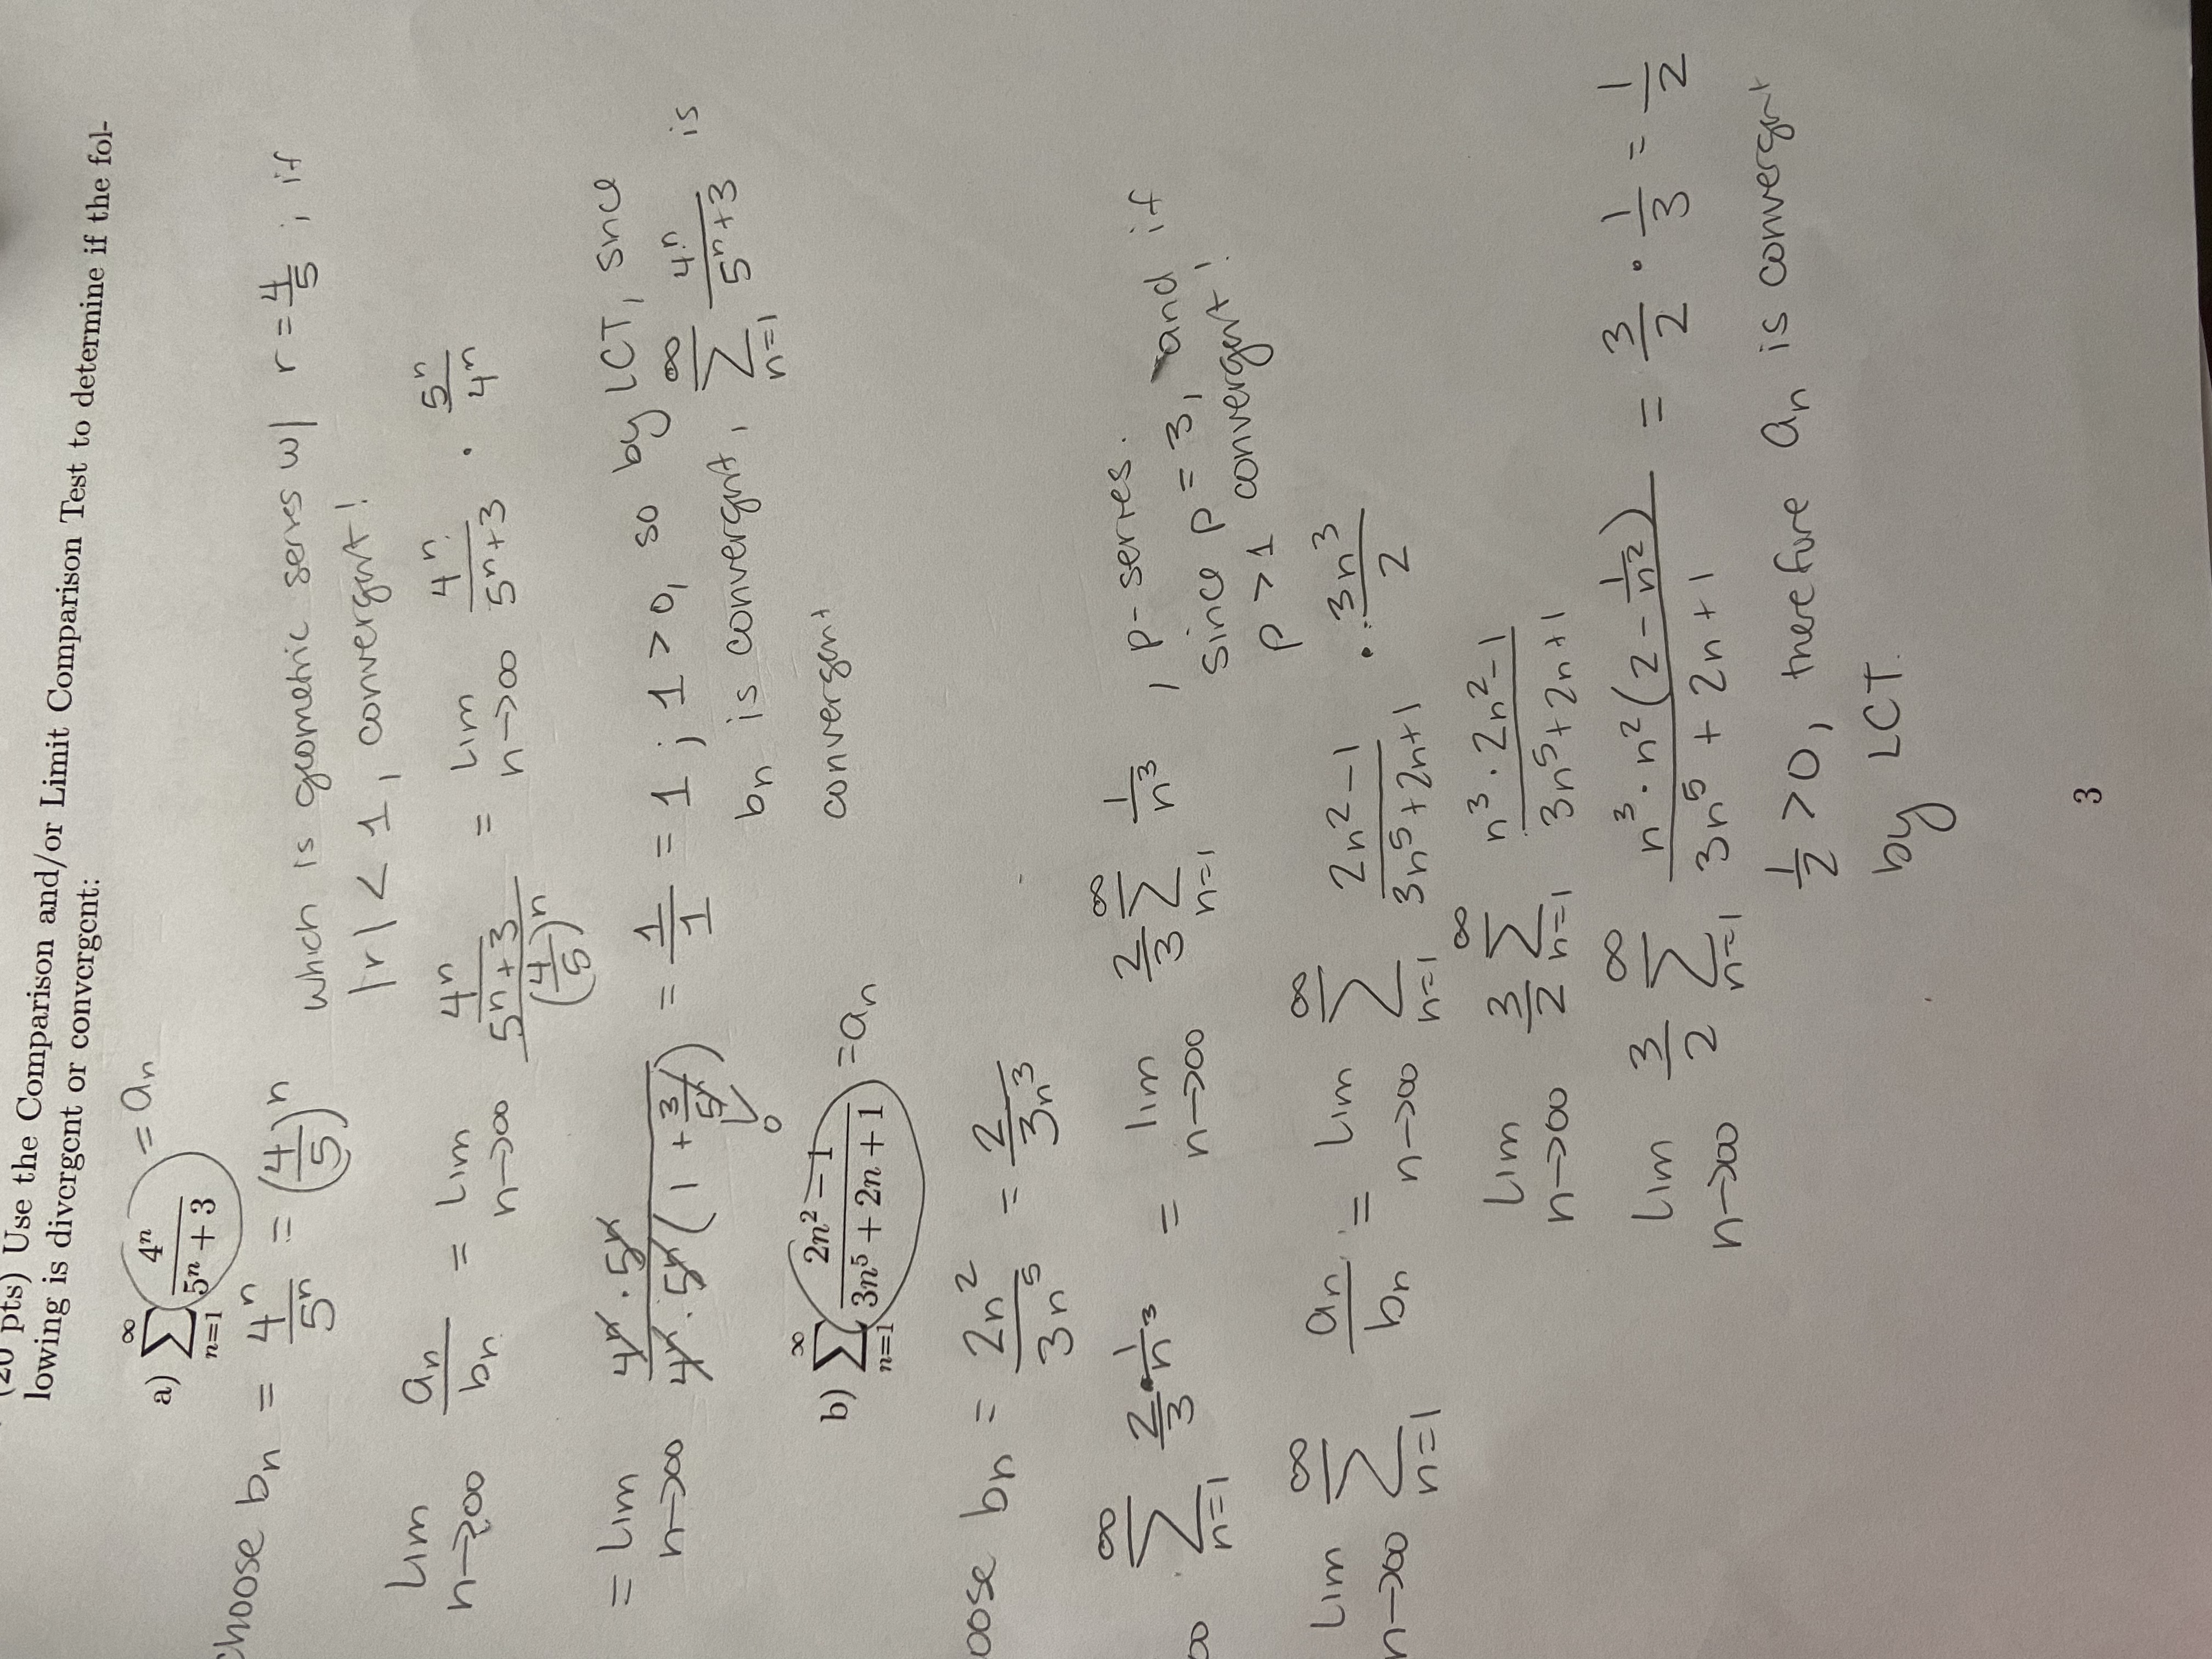 pts) Use the Comparison and/or Limit Comparison Test to determine if the fol-
lowing is divergent or convergent:
a) ∑_{n=1}^{∞} 4^n/(5^n + 3) = a_n
Choose b_n = 4^n/5^n = (4/5)^n which is geometric series w/ r = 4/5, if
|r| < 1, convergent!
lim_{n→∞} a_n/b_n = lim_{n→∞} (4^n/(5^n+3))/(4/5)^n = lim_{n→∞} 4^n/(5^n+3) · 5^n/4^n
= lim_{n→∞} (4^n · 5^n)/(4^n · 5^n (1 + 3/5^n)) = 1/1 = 1 ; 1 > 0, so by LCT, since
0
b_n is convergent, ∑_{n=1}^{∞} 4^n/(5^n+3) is
convergent
b) ∑_{n=1}^{∞} (2n^2 − 1)/(3n^5 + 2n + 1) = a_n
oose b_n = 2n^2/3n^5 = 2/3n^3
∞ ∑_{n=1}^{∞} 2/3 · 1/n^3 = lim_{n→∞} 2/3 ∑_{n=1}^{∞} 1/n^3 , p-series.
since p = 3, and if
p > 1 convergent!
lim_{n→∞} ∑_{n=1}^{∞} a_n/b_n = lim_{n→∞} ∑_{n=1}^{∞} (2n^2−1)/(3n^5+2n+1) · 3n^3/2
lim_{n→∞} 3/2 ∑_{n=1}^{∞} (n^3 · 2n^2−1)/(3n^5+2n+1)
lim_{n→∞} 3/2 ∑_{n=1}^{∞} (n^3 · n^2 (2 − 1/n^2))/(3n^5 + 2n + 1) = 3/2 · 1/3 = 1/2
1/2 > 0, therefore a_n is convergent
by LCT.
3